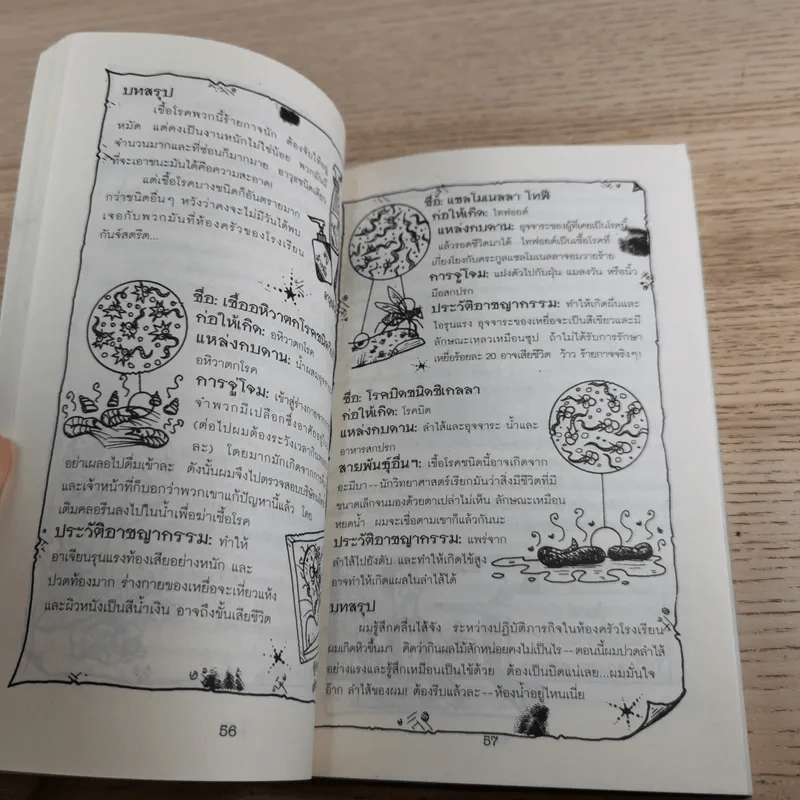 บทสรุป
เชื้อโรคพวกนี้ร้ายกาจนัก ต้องจับให้อยู่
หมัด แต่คงเป็นงานหนักไม่ใช่น้อย พวกมันมี
จำนวนมากและที่ซ่อนก็มากมาย อาวุธชนิดเดียว
ที่จะเอาชนะมันได้คือความสะอาด!
แต่เชื้อโรคบางชนิดก็อันตรายมาก
กว่าชนิดอื่นๆ หวังว่าคงจะไม่มีวันได้พบ
เจอกับพวกมันที่ห้องครัวของโรงเรียน
กันจ์สตริต...
ชื่อ: เชื้ออหิวาตกโรคชนิด
ก่อให้เกิด: อหิวาตกโรค
แหล่งกบดาน: น้ำ
อหิวาตกโรค
การจู่โจม: เข้าสู่ร่างกายจาก
จำพวกมีเปลือกซึ่งอาศัยอยู่
(ต่อไปผมต้องระวังเวลากิน
ละ) โดยมากมักเกิดจากการ
อย่าเผลอไปดื่มเข้าละ ดังนั้นผมจึงไปตรวจสอบบริษัท
และเจ้าหน้าที่ก็บอกว่าพวกเขาแก้ปัญหานี้แล้ว โดย
เติมคลอรีนลงไปในน้ำเพื่อฆ่าเชื้อโรค
ประวัติอาชญากรรม: ทำให้
อาเจียนรุนแรงท้องเสียอย่างหนัก และ
ปวดท้องมาก ร่างกายของเหยื่อจะเหี่ยวแห้ง
และผิวหนังเป็นสีน้ำเงิน อาจถึงขั้นเสียชีวิต
56
ชื่อ: แซลโมเนลลา ไทฟี
ก่อให้เกิด: ไทฟอยด์
แหล่งกบดาน: อุจจาระของผู้ที่เคยเป็นโรคนี้
แล้วรอดชีวิตมาได้ ไทฟอยด์เป็นเชื้อโรคที่
เกี่ยงโยงกับตระกูลแซลโมเนลลาจอมวายร้าย
การจู่โจม: แฝงตัวไปกับฝุ่น แมลงวัน หรือนิ้ว
มือสกปรก
ประวัติอาชญากรรม: ทำให้เกิดผื่นและ
ไอรุนแรง อุจจาระของเหยื่อจะเป็นสีเขียวและมี
ลักษณะเหลวเหมือนซุป ถ้าไม่ได้รับการรักษา
เหยื่อร้อยละ 20 อาจเสียชีวิต ว้าว ร้ายกาจจริงๆ!
ชื่อ: โรคบิดชนิดชิเกลลา
ก่อให้เกิด: โรคบิด
แหล่งกบดาน: ลำไส้และอุจจาระ น้ำและ
อาหารสกปรก
สายพันธุ์อื่นๆ: เชื้อโรคชนิดนี้อาจเกิดจาก
อะมีบา -- นักวิทยาศาสตร์เรียกมันว่าสิ่งมีชีวิตที่มี
ขนาดเล็กจนมองด้วยตาเปล่าไม่เห็น ลักษณะเหมือน
หยดน้ำ ผมจะเชื่อตามเขาก็แล้วกันนะ
ประวัติอาชญากรรม: แพร่จาก
ลำไส้ไปยังตับ และทำให้เกิดไข้สูง
อาจทำให้เกิดแผลในลำไส้ได้
บทสรุป
ผมรู้สึกคลื่นไส้จัง ระหว่างปฏิบัติภารกิจในห้องครัวโรงเรียน
ผมเกิดหิวขึ้นมา คิดว่ากินผลไม้สักหน่อยคงไม่เป็นไร -- ตอนนี้ผมปวดลำไส้
อย่างแรงและรู้สึกเหมือนเป็นไข้ด้วย ต้องเป็นบิดแน่เลย...ผมมั่นใจ
อ๊าก ลำไส้ของผม! ต้องรีบแล้วละ -- ห้องน้ำอยู่ไหนเนี่ย
57